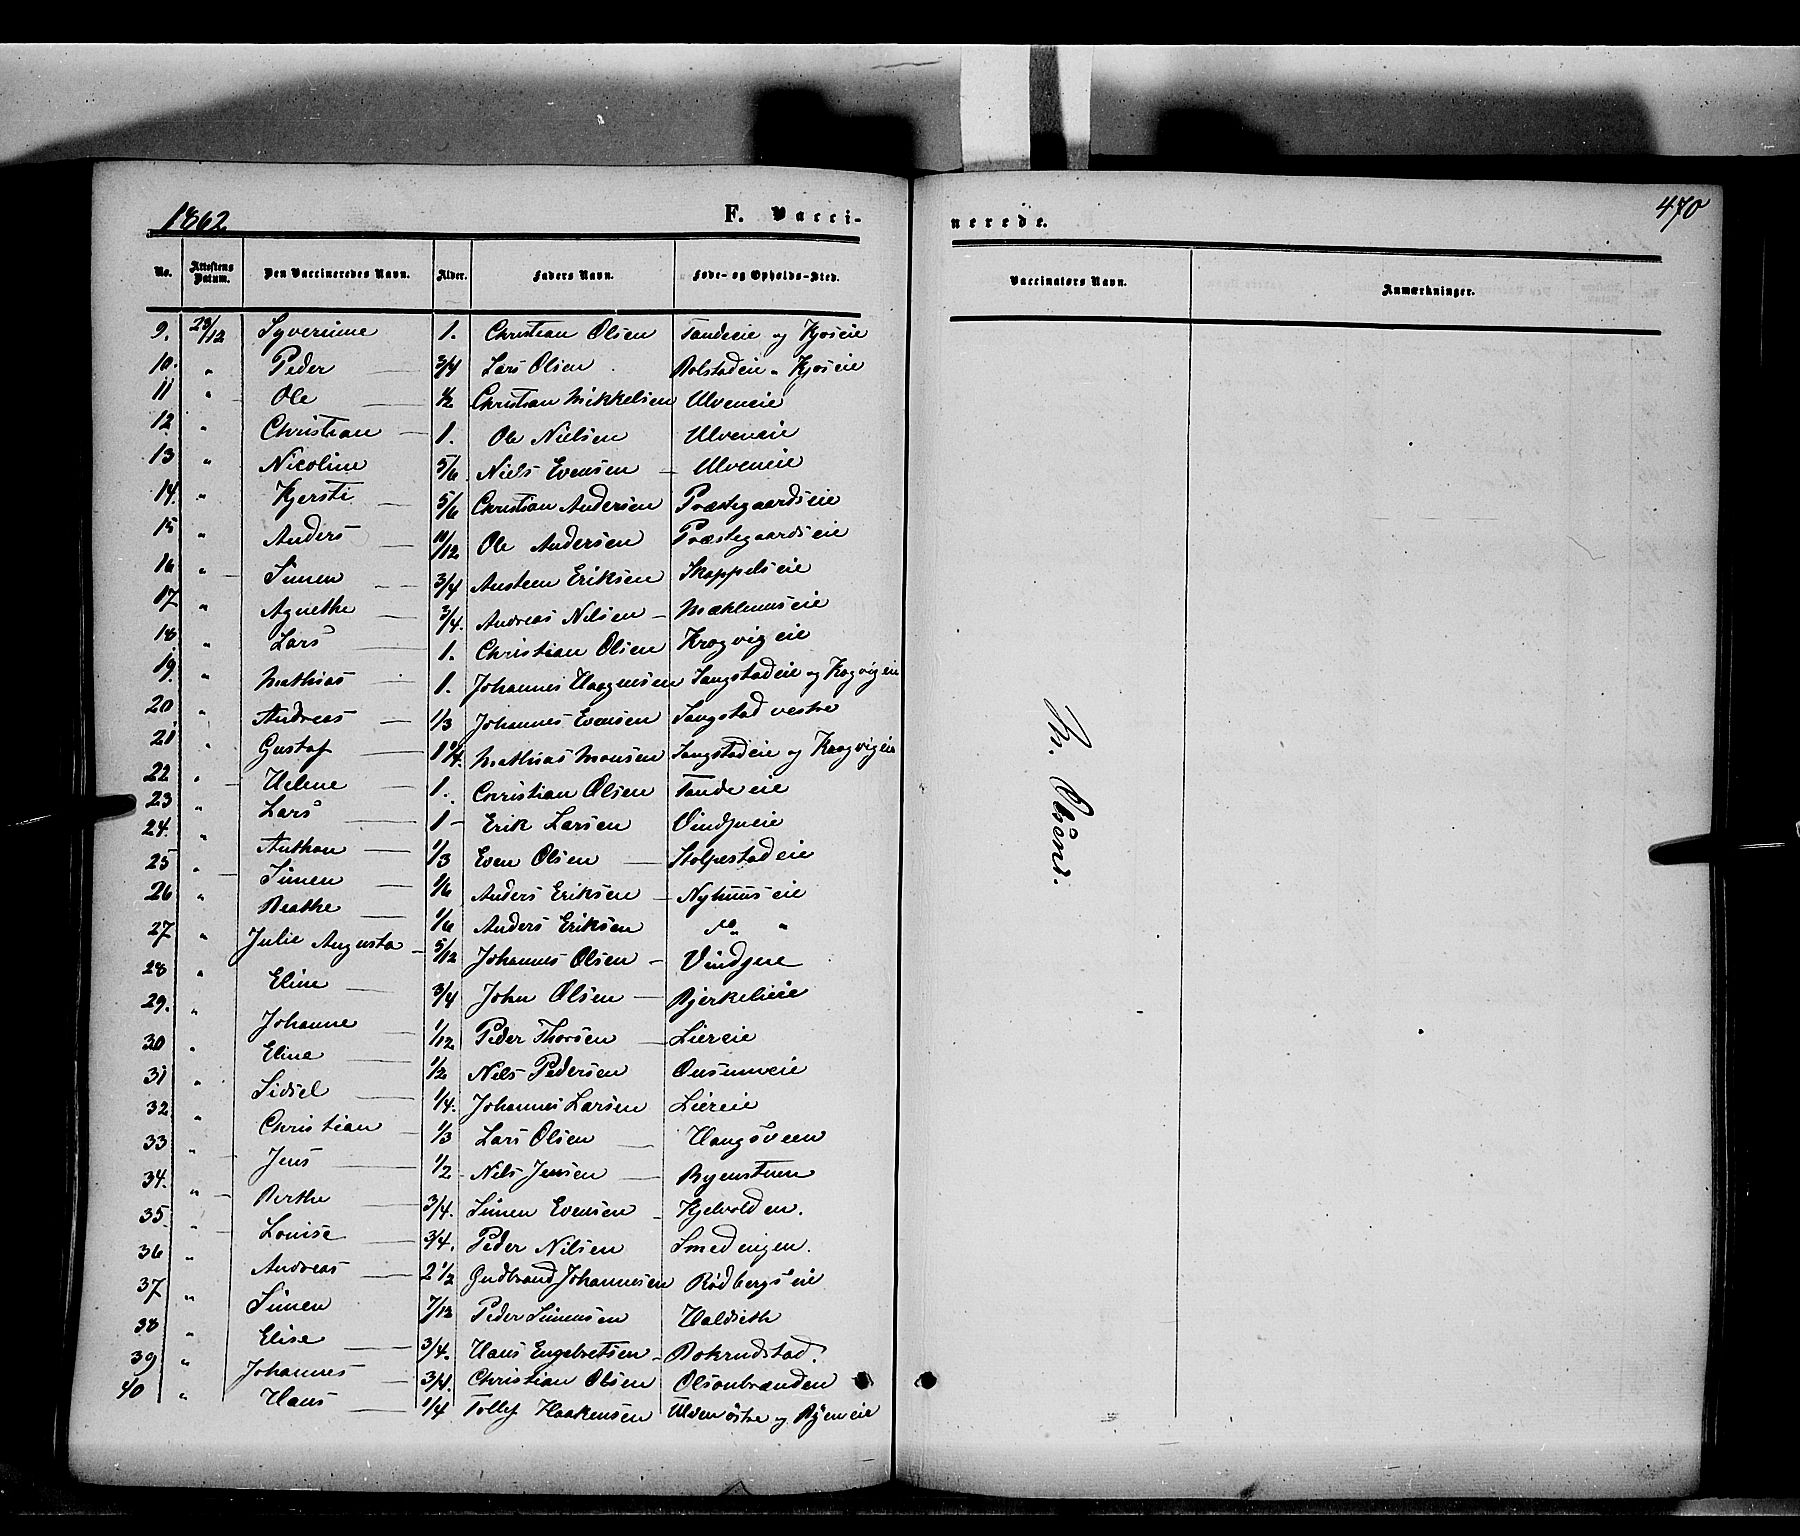 1862. F. Vacci- nerede. 470
No. Attestens Datum. Den Vaccineredes Navn. Alder. Faders Navn. Føde- og Opholds-Sted. Vaccinatørs Navn. Anmærkninger.
9. 29/12 Syverinne 1. Christian Olsen Tandeeie og Kjoseie
10. " Peder 3/4 Lars Olsen Bolstadeie " Kjoseie
11 " Ole 1/2 Christian Mikkelsen Ulveneie
12 " Christian 1. Ole Nielsen Ulveneie
13 " Nicoline 5/6 Niels Evensen Ulveneie
14. " Kjersti 5/6 Christian Andersen Præstegaardseie
15 " Anders 11/12 Ole Andersen Præstegaardseie
16 " Simen 3/4 Austeen Eriksen Skappelseie
17 " Agnethe 3/4. Andreas Nilsen Mæhlumseie
18 " Lars 1. Christian Olsen Krogvigeie
19. " Mathias 1. Johannes Haagensen Sangstadeie og Krogvigeie
20 " Andreas 1/3 Johannes Evensen Sangstad vestre
21 " Gustaf 1 1/4. Mathias Monsen Sangstadeie og Krogvigeie
22 " Helene 1. Christian Olsen Tandeeie
23 " Lars 1 Erik Larsen Vindjueie
24. " Anthon 1/3 Even Olsen Stolpestadeie
25 " Simen 1/6 Anders Eriksen Nyhuuseie
26 " Beathe 1/6 Anders Eriksen do "
27 " Julie Augusta 5/12 Johannes Olsen Vindjueie
28 " Eline 3/4 John Olsen Bjerkelieie
29. " Johanne 1/12 Peder Thorsen Liereie
30 " Eline 1/2 Nils Pedersen
31 " Sidsel 1/4. Johannes Larsen Liereie
32 " Christian 1/3 Lars Olsen Haugsveen
33 " Jens 1/2 Nils Jensen Byenstuen
34. " Berthe 3/4. Simen Evensen Kjelvolden.
35 " Louise 3/4. Peder Nilsen Smedengen.
36 " Andreas 2 1/2 Gudbrand Johannesen Rødbergseie
37 " Simen 7/12 Peder Simensen Haldsieth
38 " Elise 3/4. Hans Engebretsen Bokrudstad.
39 " Johannes 3/4. Christian Olsen Olsonbrænden
40 " Hans 1/4 Tollef Haakensen Ulven østre og Byeneie